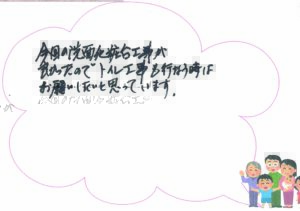 今回の洗面化粧台工事が
良かったので トイレ工事も行なう時は
お願いしたいと思っています。